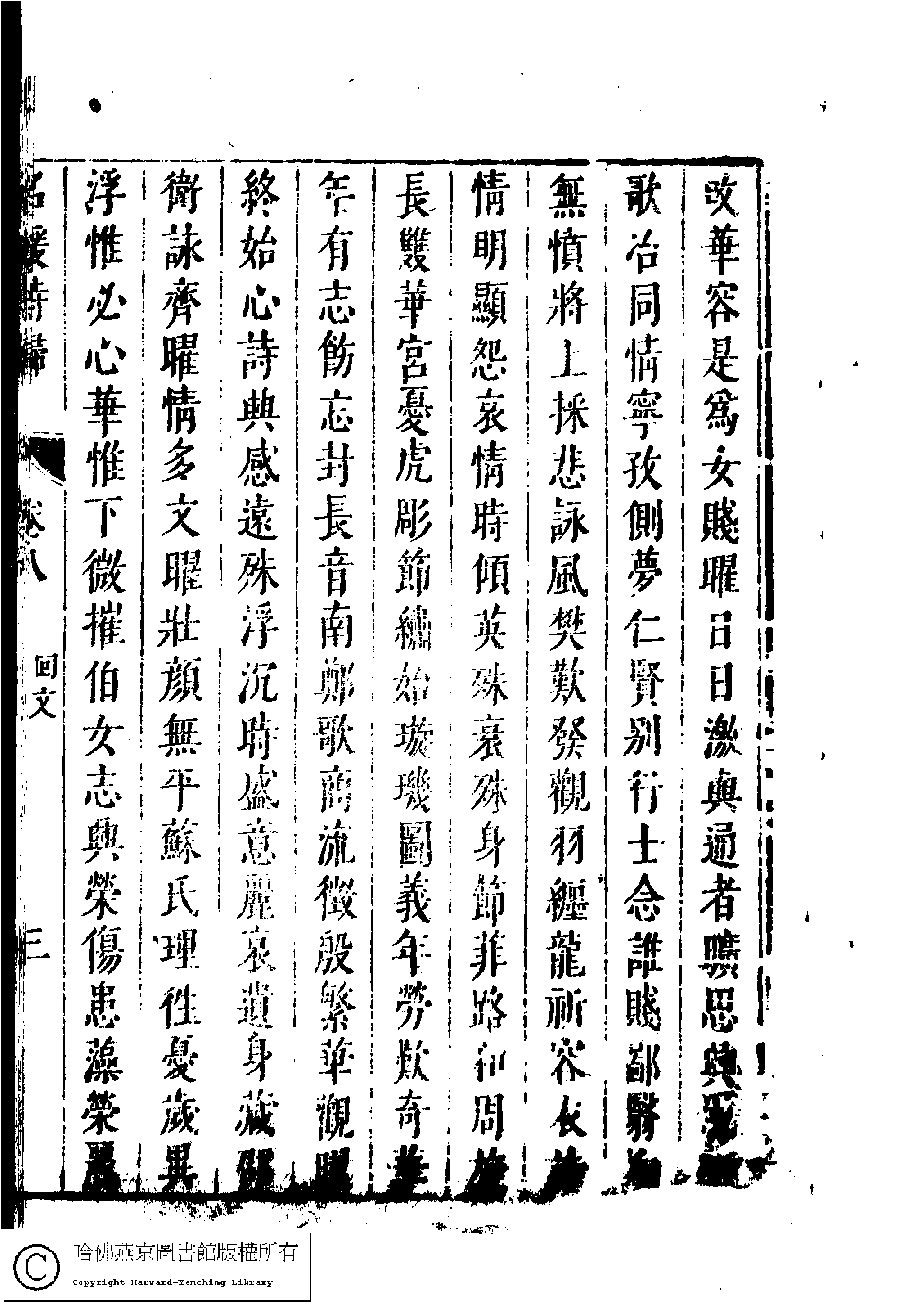 改華容是為女賤曜日日激與通者曠思典
歌冶同情寧孜側夢仁賢别行士念誰賤鄙翳
無憤將上採悲詠風樊歎發觀羽纏龍祈容衣
情明顯怨哀情時傾英殊衰殊身節菲路和周
長雙華宮憂虎彫節繡始璇璣圖義年勞歎奇華
年有志飭志封長音南鄭歌商流徵殷繁華觀曜
終始心詩典感遠殊浮沉時盛意麗哀遺身藏
衛詠齊曜情多文曜壯顔無平蘇氏理性憂歲異
浮惟必心華惟下微摧伯女志興榮傷患藻榮麗
名媛詩歸 卷八 回文 三
哈佛燕京圖書館版權所有
Copyright Harvard-Yenching Library